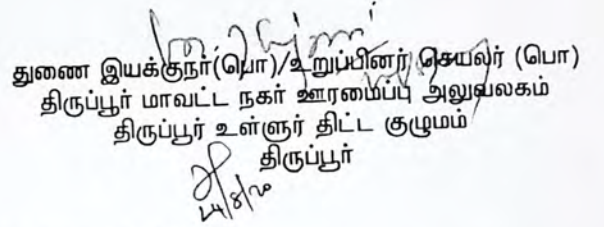 துணை இயக்குநர்(பொ)/உறுப்பினர் செயலர் (பொ)
திருப்பூர் மாவட்ட நகர் ஊரமைப்பு அலுவலகம்
திருப்பூர் உள்ளுர் திட்ட குழுமம்
திருப்பூர்
24/8/20